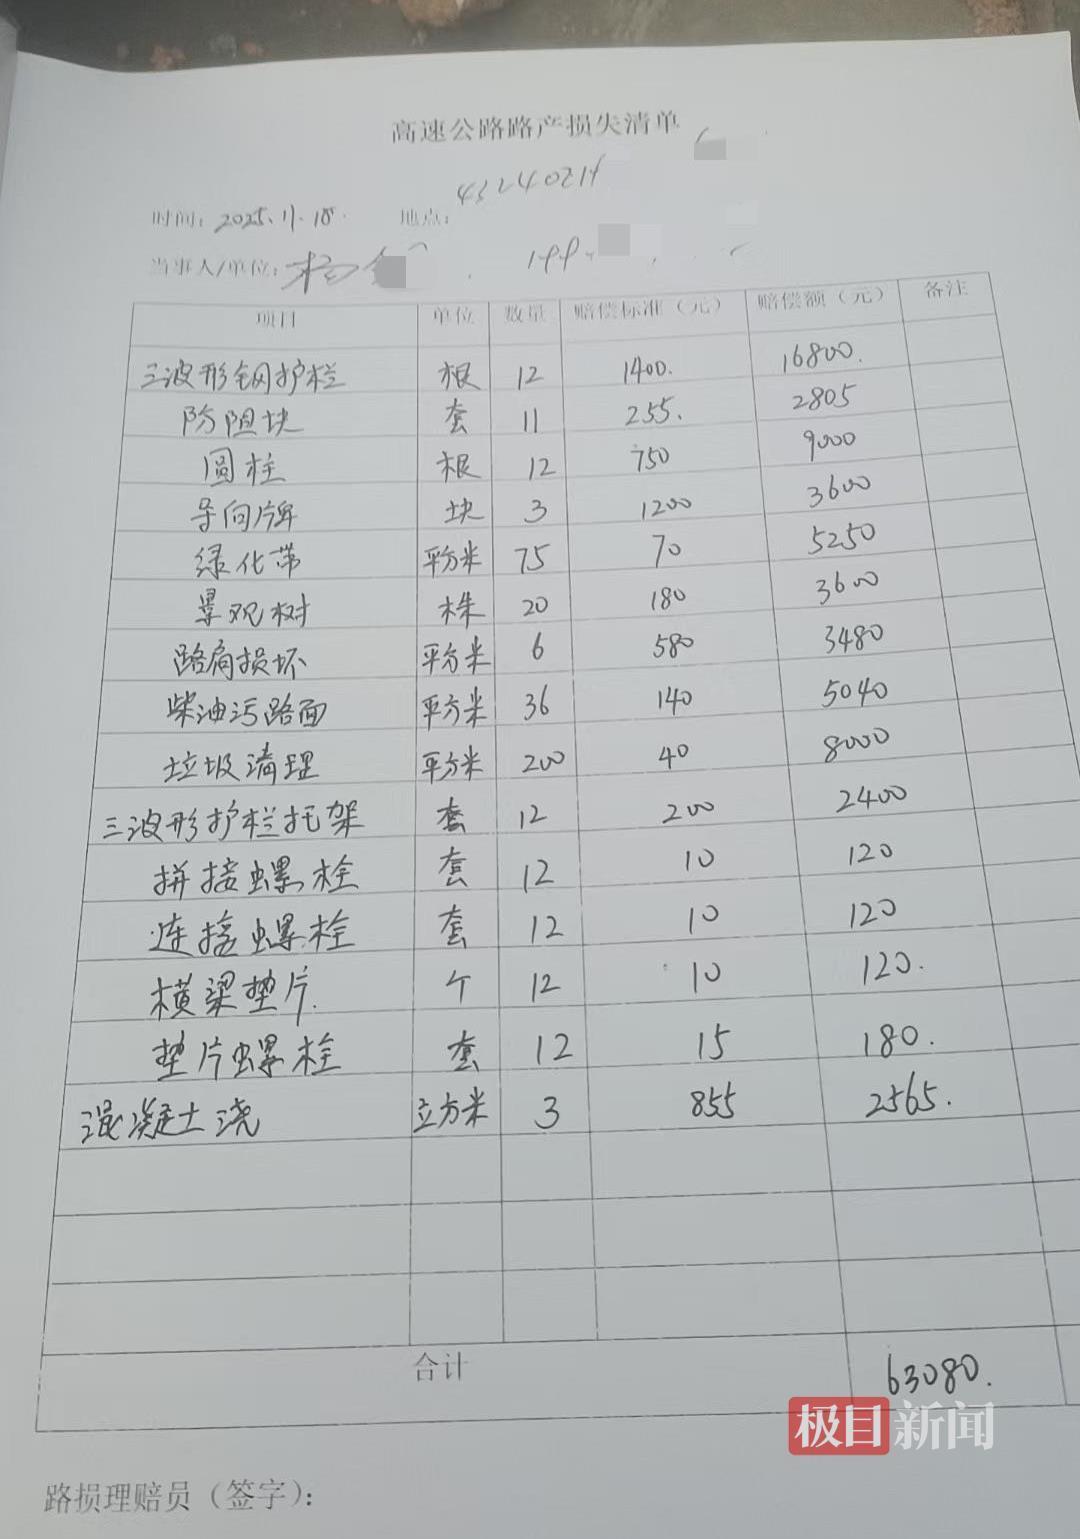 高速公路路产损失清单
时间：2025.11.18. 地点：
当事人/单位：杨
项目 单位 数量 赔偿标准（元） 赔偿额（元） 备注
三波形钢护栏 根 12 1400. 16800.
防阻块 套 11 255. 2805
圆柱 根 12 750 9000
导向牌 块 3 1200 3600
绿化带 平方米 75 70 5250
景观树 株 20 180 3600
路肩损坏 平方米 6 580 3480
柴油污路面 平方米 36 140 5040
垃圾清理 平方米 200 40 8000
三波形护栏托架 套 12 200 2400
拼接螺栓 套 12 10 120
连接螺栓 套 12 10 120
横梁垫片. 个 12 10 120.
垫片螺栓 套 12 15 180.
混凝土浇 立方米 3 855 2565.
合计 63080.
极目新闻
路损理赔员（签字）：